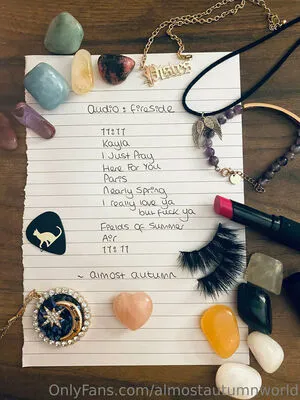 Pisces
audio : fireside
11:11
Kayla
I Just Pray
Here For You
Paris
Nearly Spring
I really love ya
but fuck ya
Fields of Summer
Air
11:11
~ almost autumn
OnlyFans.com/almostautumnworld